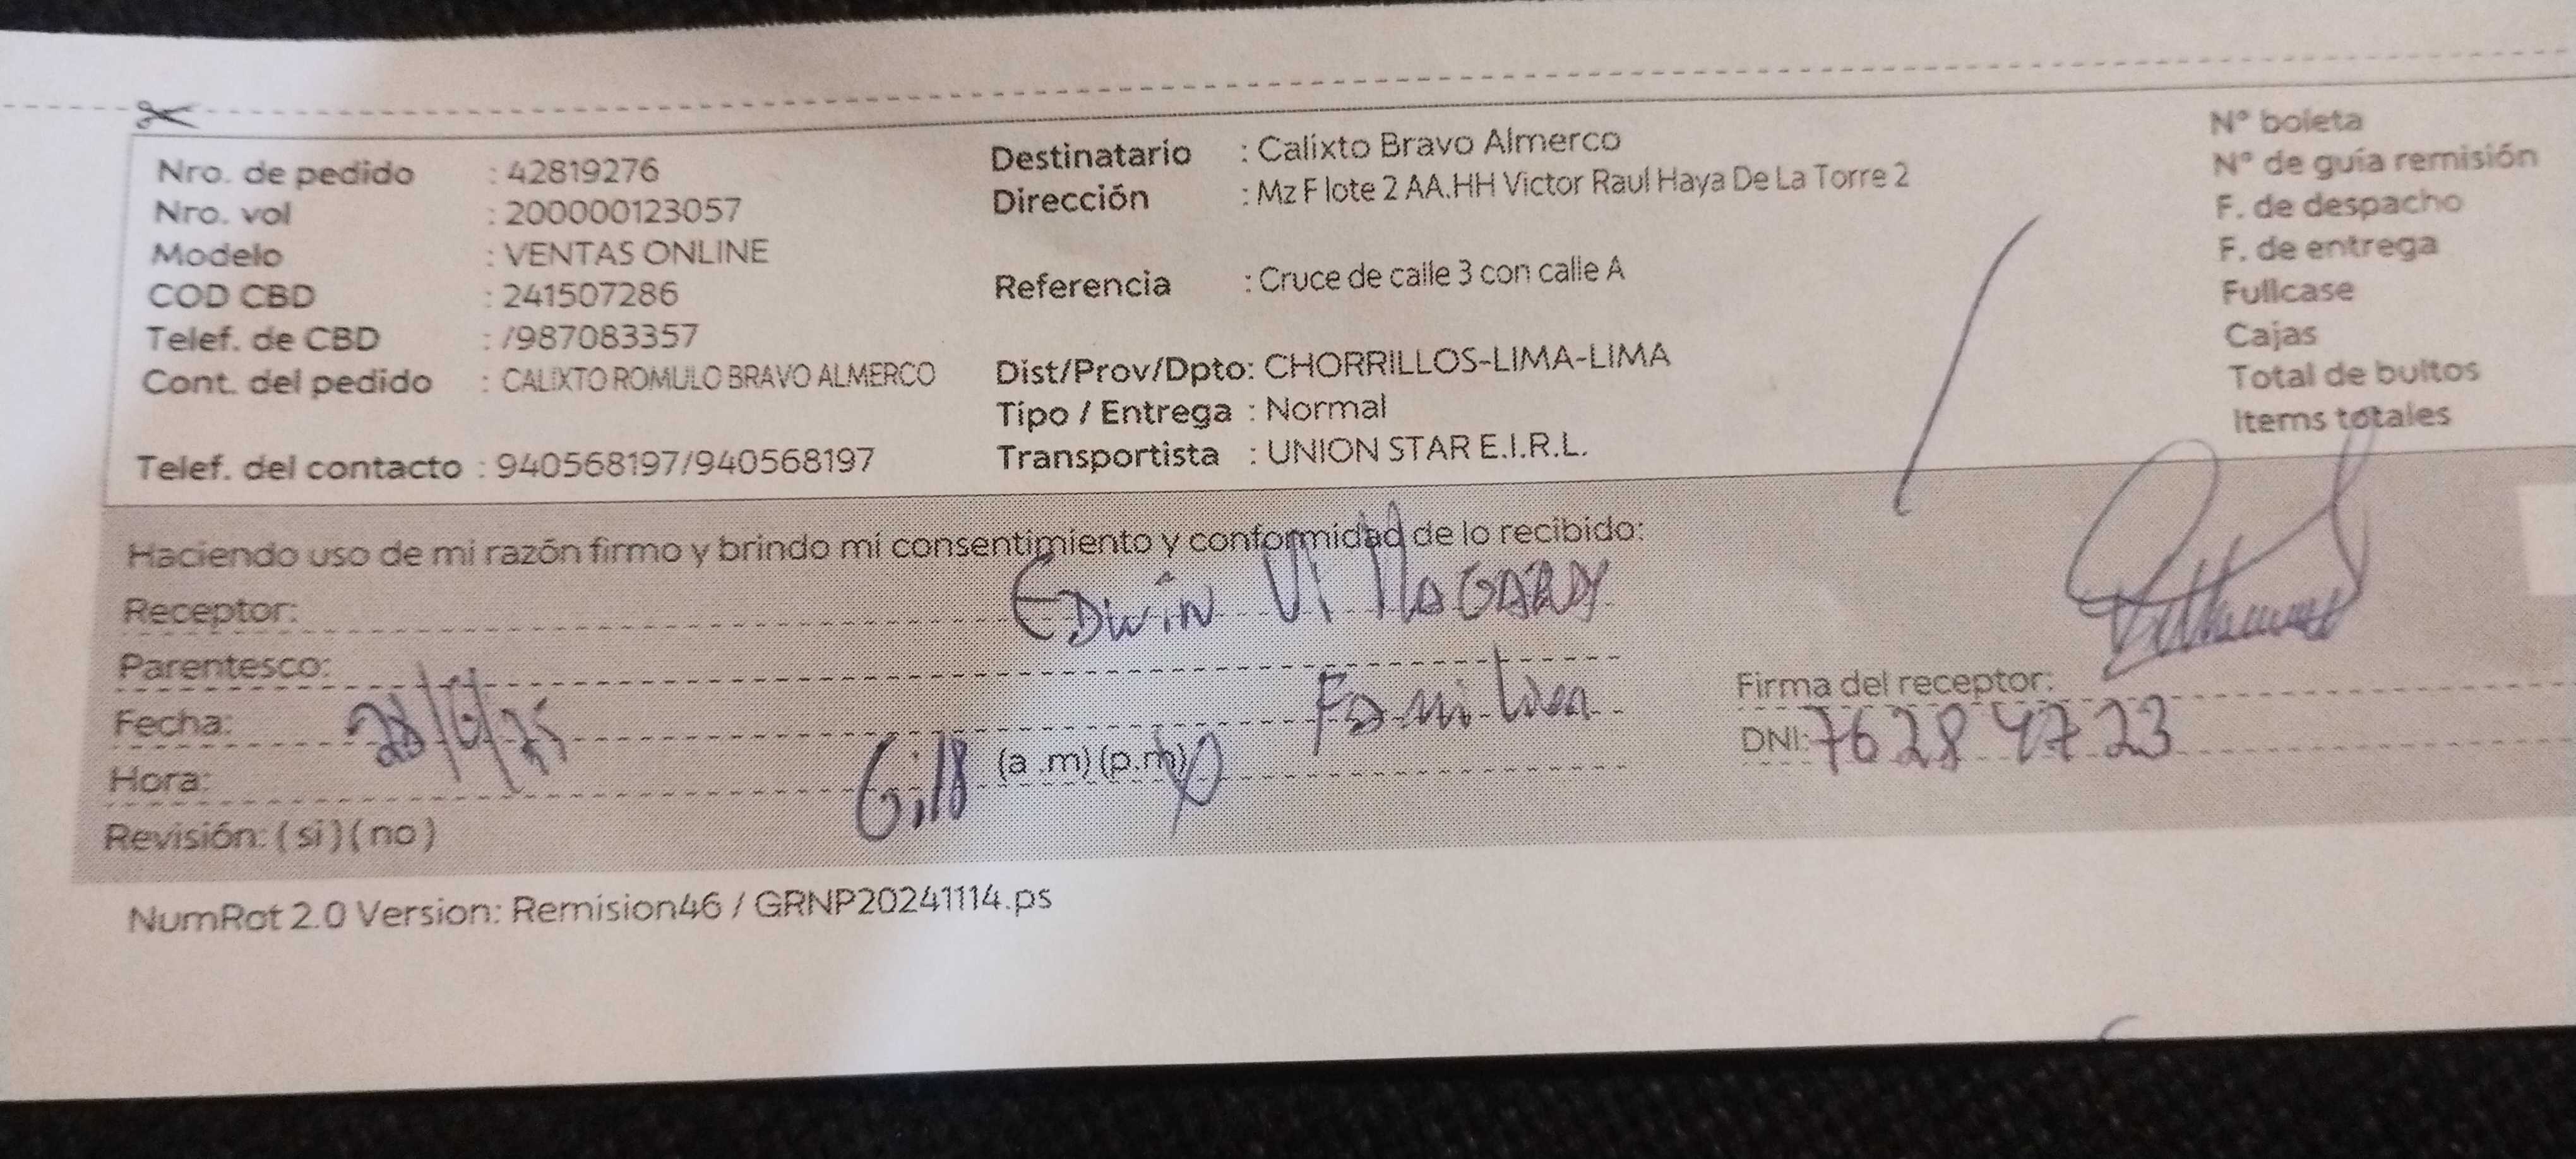 Nro. de pedido : 42819276
Nro. vol : 200000123057
Modelo : VENTAS ONLINE
COD CBD : 241507286
Telef. de CBD : /987083357
Cont. del pedido : CALIXTO ROMULO BRAVO ALMERCO
Telef. del contacto : 940568197/940568197
Destinatario : Calixto Bravo Almerco
Dirección : Mz F lote 2 AA.HH Victor Raul Haya De La Torre 2
Referencia : Cruce de calle 3 con calle A
Dist/Prov/Dpto: CHORRILLOS-LIMA-LIMA
Tipo / Entrega : Normal
Transportista : UNION STAR E.I.R.L.
N° boleta
N° de guía remisión
F. de despacho
F. de entrega
Fullcase
Cajas
Total de bultos
Items totales
Haciendo uso de mi razón firmo y brindo mi consentimiento y conformidad de lo recibido:
Receptor: Edwin
Parentesco: Familiar
Fecha:
Hora: 6:18 (a .m) (p.m)
Revisión: ( si ) ( no )
Firma del receptor:
DNI: 76284723
NumRot 2.0 Version: Remision46 / GRNP20241114.ps